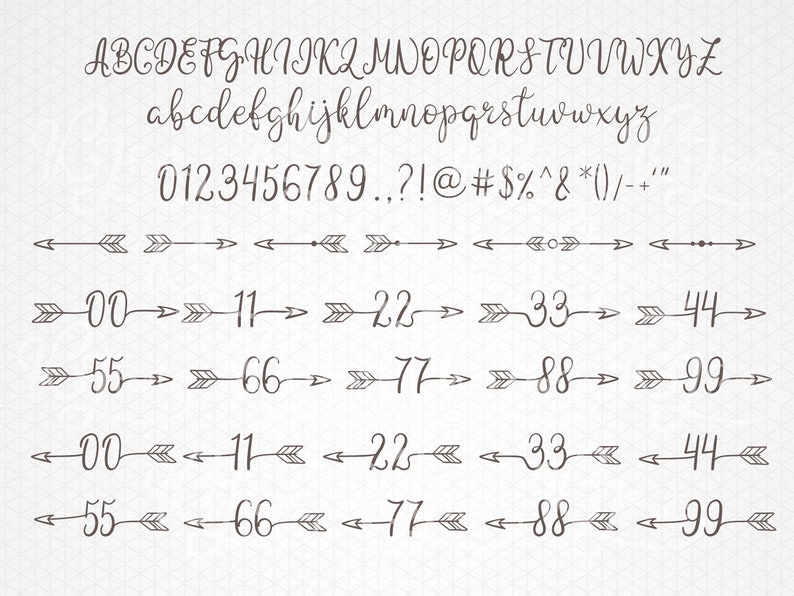 ABCDEFGHIJKLMNOPQRSTUVWXYZ
abcdefghijklmnopqrstuvwxyz
0123456789.,?!@#$%^&*()/-+'"
00 11 22 33 44
55 66 77 88 99
00 11 22 33 44
55 66 77 88 99